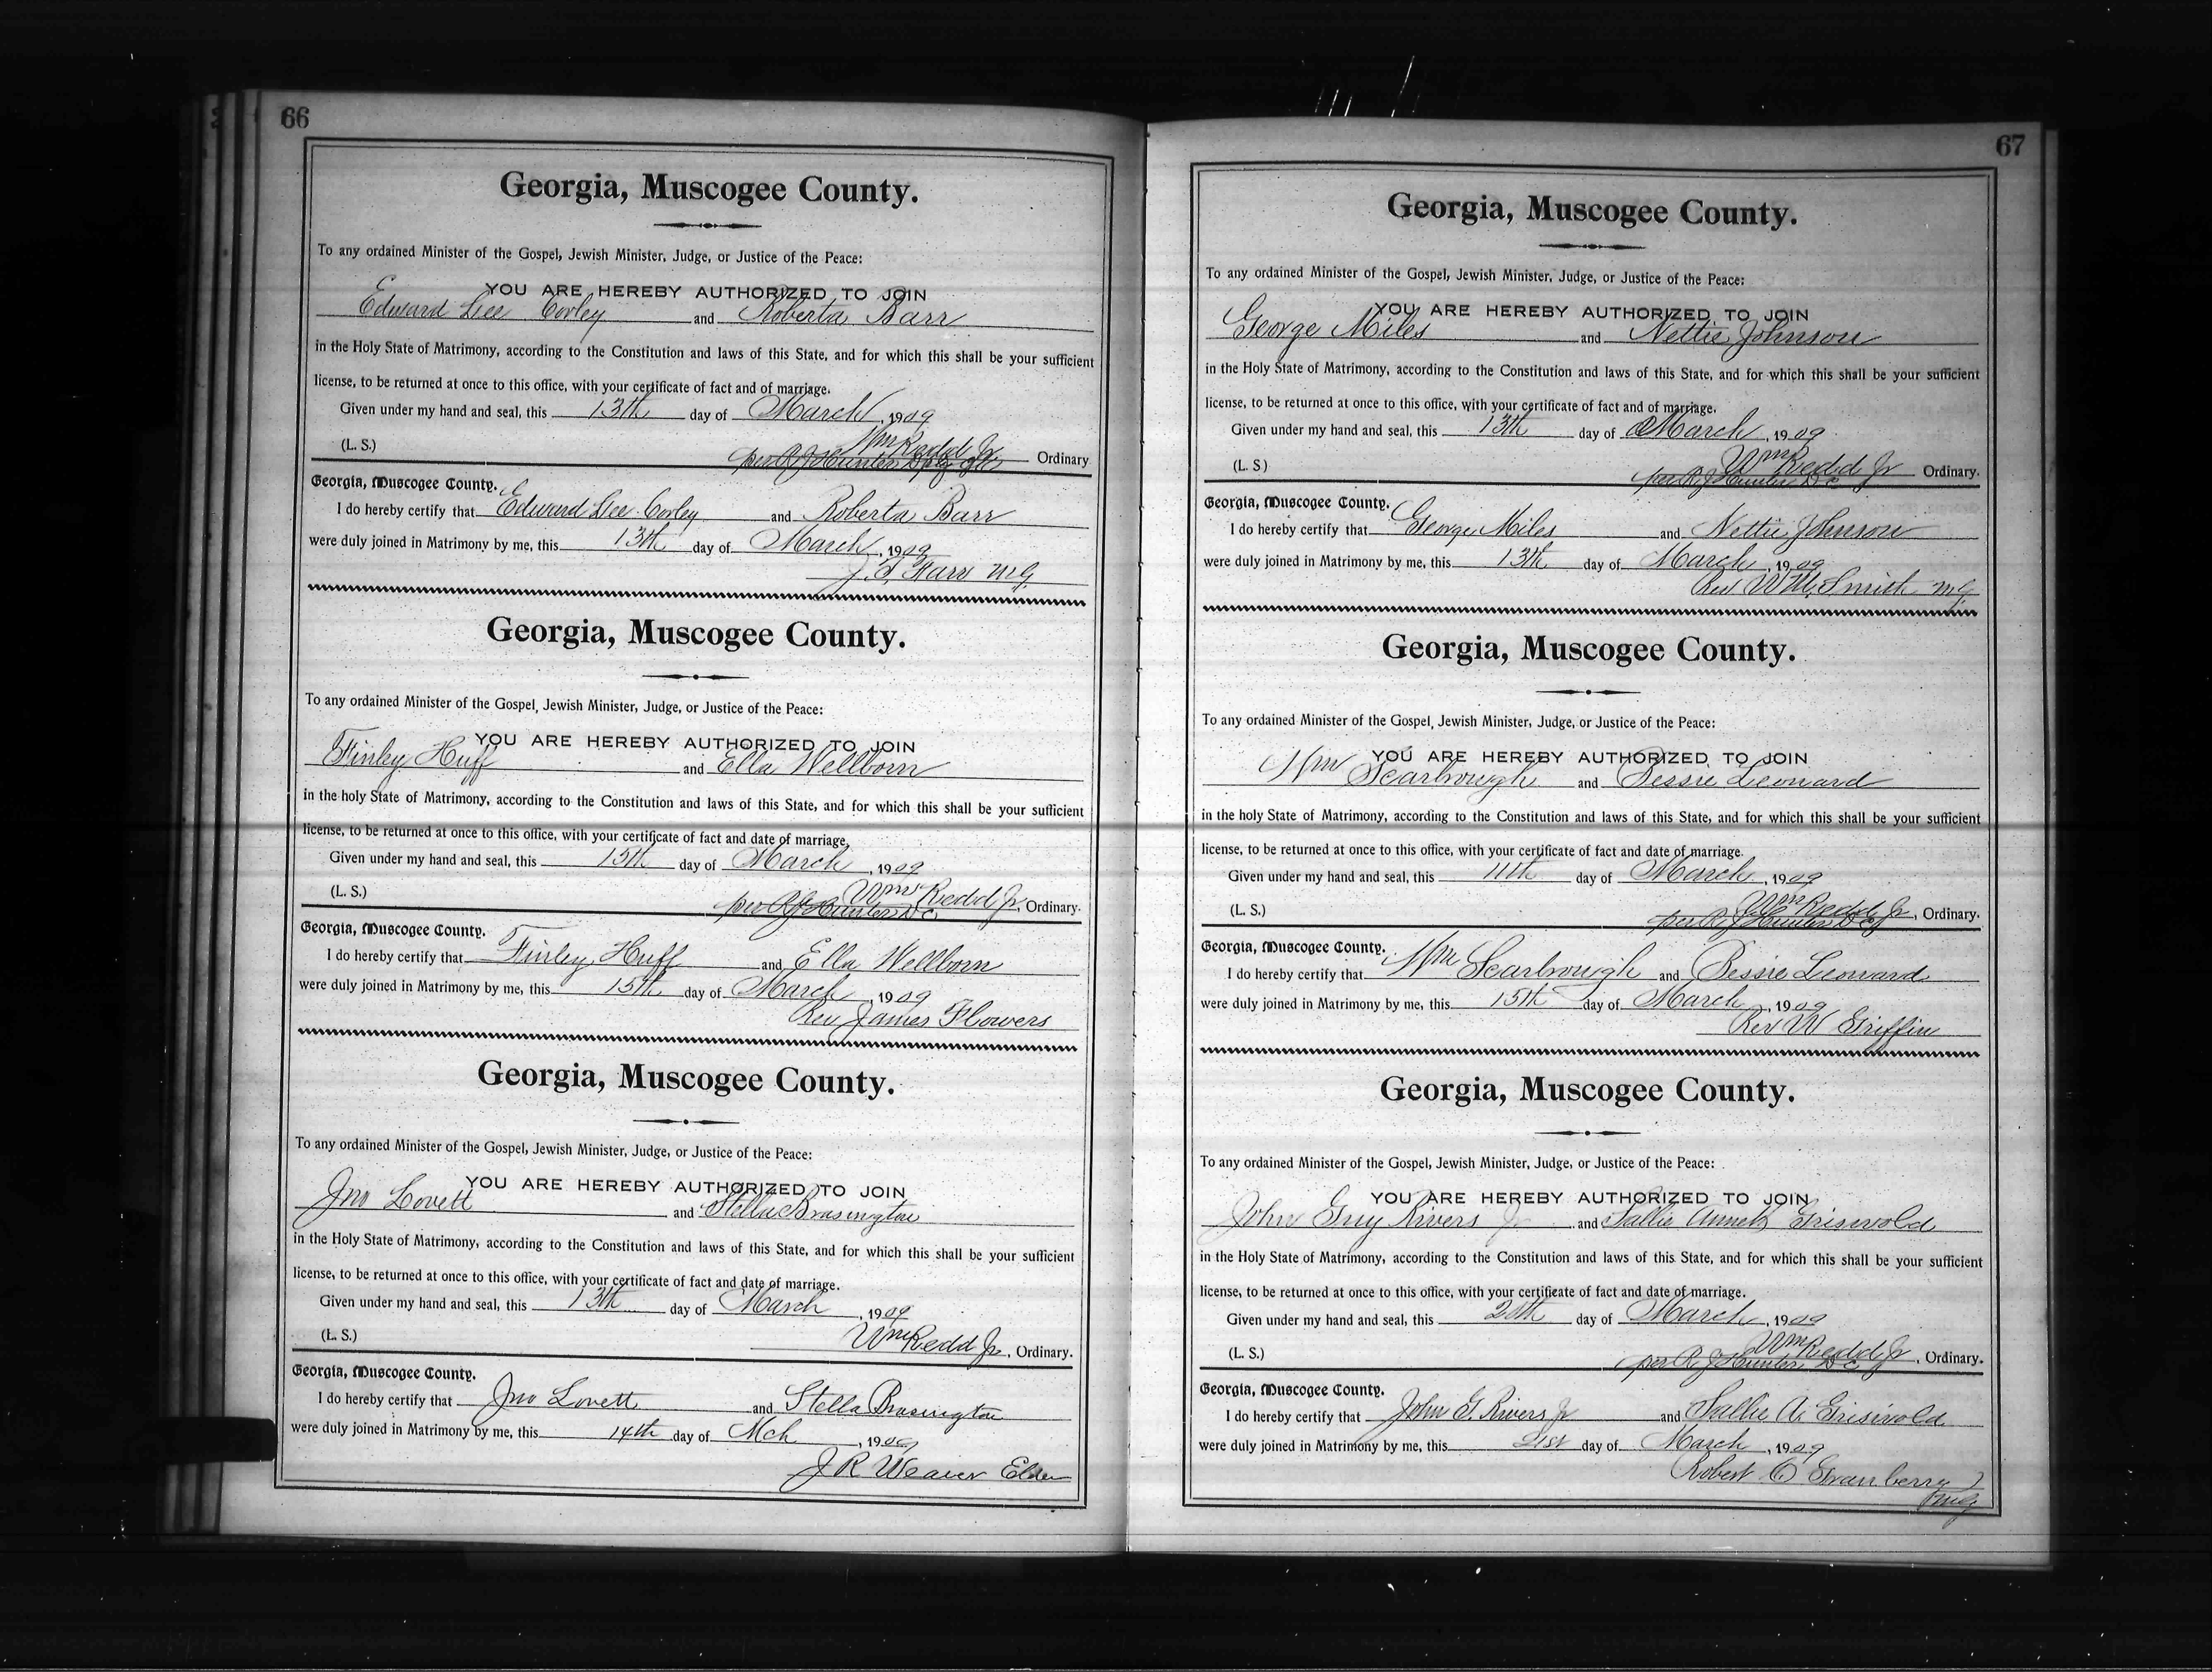 66
Georgia, Muscogee County.
To any ordained Minister of the Gospel, Jewish Minister, Judge, or Justice of the Peace:
YOU ARE HEREBY AUTHORIZED TO JOIN
Edward Lee Corley and Roberta Barr
in the Holy State of Matrimony, according to the Constitution and laws of this State, and for which this shall be your sufficient
license, to be returned at once to this office, with your certificate of fact and of marriage.
Given under my hand and seal, this 13th day of March, 1909
Wm Redd Jr
(L. S.) per R J Hunter Ordinary
Georgia, Muscogee County.
I do hereby certify that Edward Lee Corley and Roberta Barr
were duly joined in Matrimony by me, this 13th day of March, 1909
J. S. M.G.
Georgia, Muscogee County.
To any ordained Minister of the Gospel, Jewish Minister, Judge, or Justice of the Peace:
YOU ARE HEREBY AUTHORIZED TO JOIN
Finley Huff and Ella Wellborn
in the holy State of Matrimony, according to the Constitution and laws of this State, and for which this shall be your sufficient
license, to be returned at once to this office, with your certificate of fact and date of marriage.
Given under my hand and seal, this 15th day of March, 1909
Wm Redd Jr
(L. S.) per R J Hunter D C, Ordinary.
Georgia, Muscogee County.
I do hereby certify that Finley Huff and Ella Wellborn
were duly joined in Matrimony by me, this 15th day of March, 1909
Rev James Flowers
Georgia, Muscogee County.
To any ordained Minister of the Gospel, Jewish Minister, Judge, or Justice of the Peace:
YOU ARE HEREBY AUTHORIZED TO JOIN
Jno Lovett and Stella Brasington
in the Holy State of Matrimony, according to the Constitution and laws of this State, and for which this shall be your sufficient
license, to be returned at once to this office, with your certificate of fact and date of marriage.
Given under my hand and seal, this 13th day of March, 1909
(L. S.) Wm Redd Jr, Ordinary.
Georgia, Muscogee County.
I do hereby certify that Jno Lovett and Stella Brasington
were duly joined in Matrimony by me, this 14th day of Mch, 1909
J R Weaver Elder
67
Georgia, Muscogee County.
To any ordained Minister of the Gospel, Jewish Minister, Judge, or Justice of the Peace:
YOU ARE HEREBY AUTHORIZED TO JOIN
George Miles and Nettie Johnson
in the Holy State of Matrimony, according to the Constitution and laws of this State, and for which this shall be your sufficient
license, to be returned at once to this office, with your certificate of fact and of marriage.
Given under my hand and seal, this 13th day of March, 1909
Wm Redd Jr
(L. S) per R J Hunter D C Ordinary.
Georgia, Muscogee County.
I do hereby certify that George Miles and Nettie Johnson
were duly joined in Matrimony by me, this 13th day of March, 1909
Rev W M Smith M.G.
Georgia, Muscogee County.
To any ordained Minister of the Gospel, Jewish Minister, Judge, or Justice of the Peace:
YOU ARE HEREBY AUTHORIZED TO JOIN
Wm Scarbrough and Bessie Leonard
in the holy State of Matrimony, according to the Constitution and laws of this State, and for which this shall be your sufficient
license, to be returned at once to this office, with your certificate of fact and date of marriage.
Given under my hand and seal, this 11th day of March, 1909
Wm Redd Jr
(L. S.) per R J Hunter D C, Ordinary.
Georgia, Muscogee County.
I do hereby certify that Wm Scarbrough and Bessie Leonard
were duly joined in Matrimony by me, this 15th day of March, 1909
Rev W Griffin
Georgia, Muscogee County.
To any ordained Minister of the Gospel, Jewish Minister, Judge, or Justice of the Peace:
YOU ARE HEREBY AUTHORIZED TO JOIN
John Guy Rivers Jr and Sallie Griswold
in the Holy State of Matrimony, according to the Constitution and laws of this State, and for which this shall be your sufficient
license, to be returned at once to this office, with your certificate of fact and date of marriage.
Given under my hand and seal, this 20th day of March, 1909
Wm Redd Jr
(L. S.) per R J Hunter D C, Ordinary.
Georgia, Muscogee County.
I do hereby certify that John G. Rivers Jr and Sallie A. Griswold
were duly joined in Matrimony by me, this 21st day of March, 1909
Robert O Granberry
M.G.